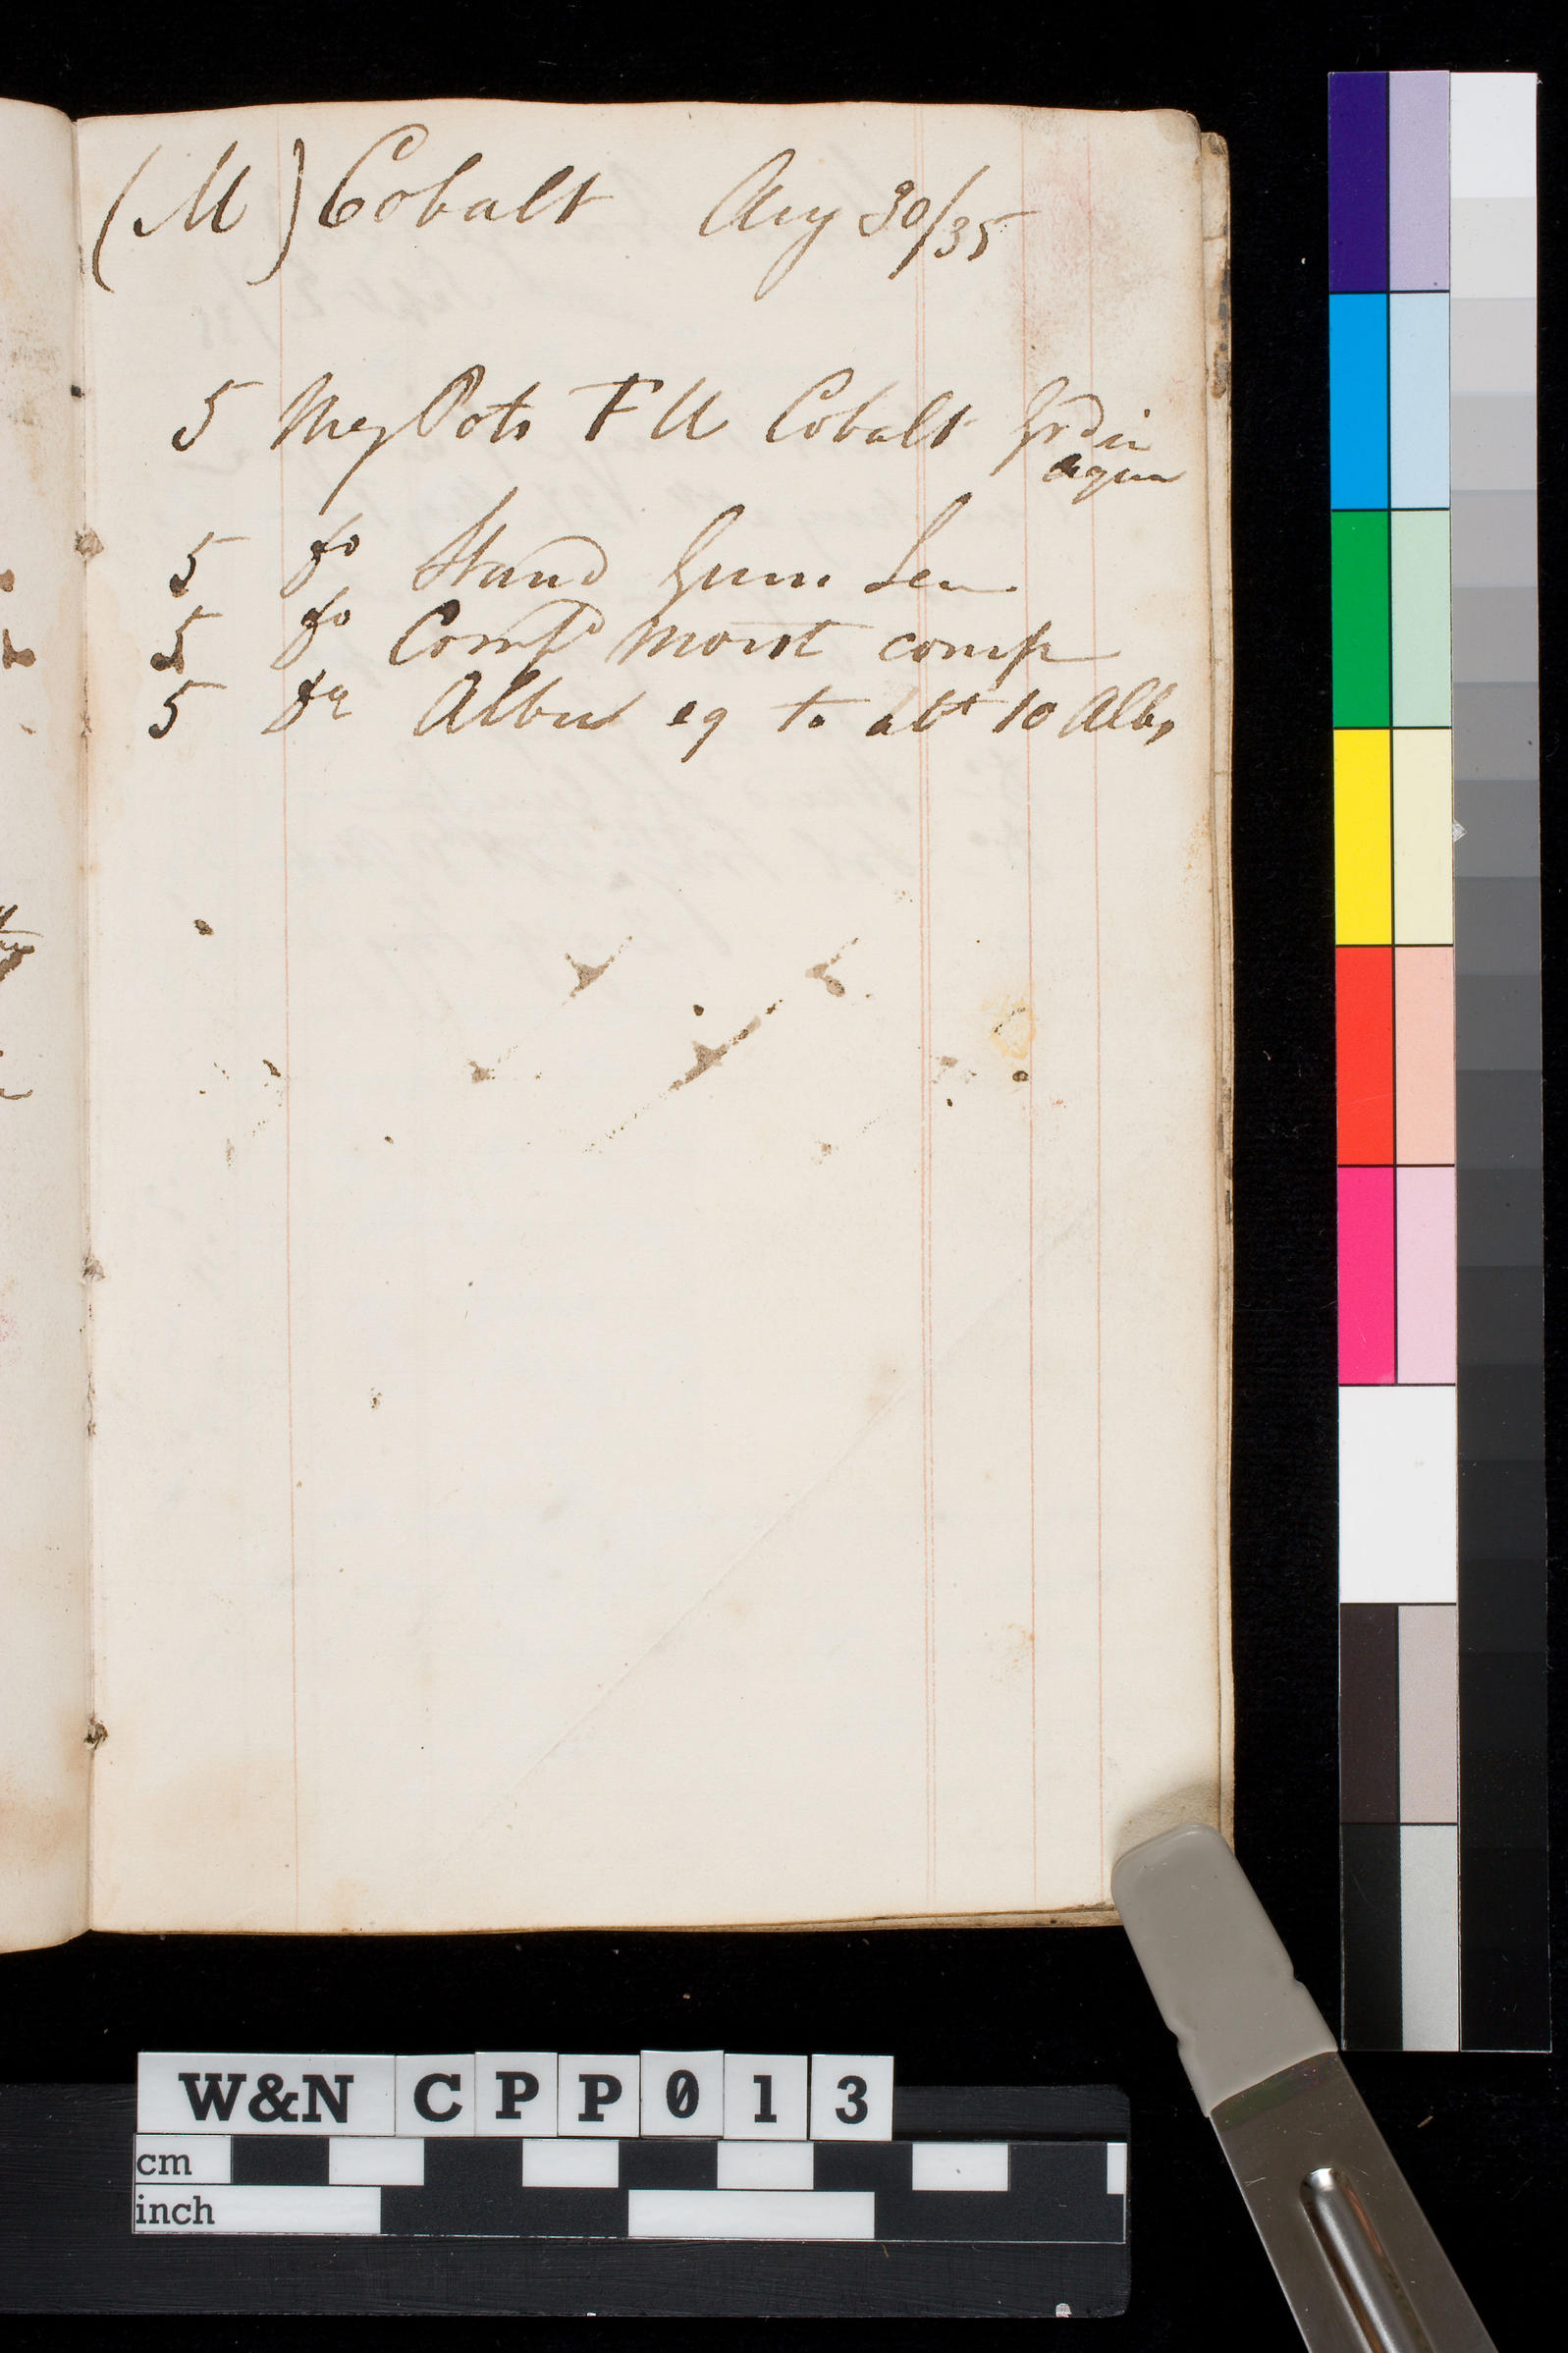 (M) Cobalt Aug 30/35
5 Meg Pots F U Cobalt Grd in
aqua
5 do Stand Gum Sen
5 do Compd moist comp
5 do Albu eq to abt 10 Albs
W&N CPP013
cm
inch